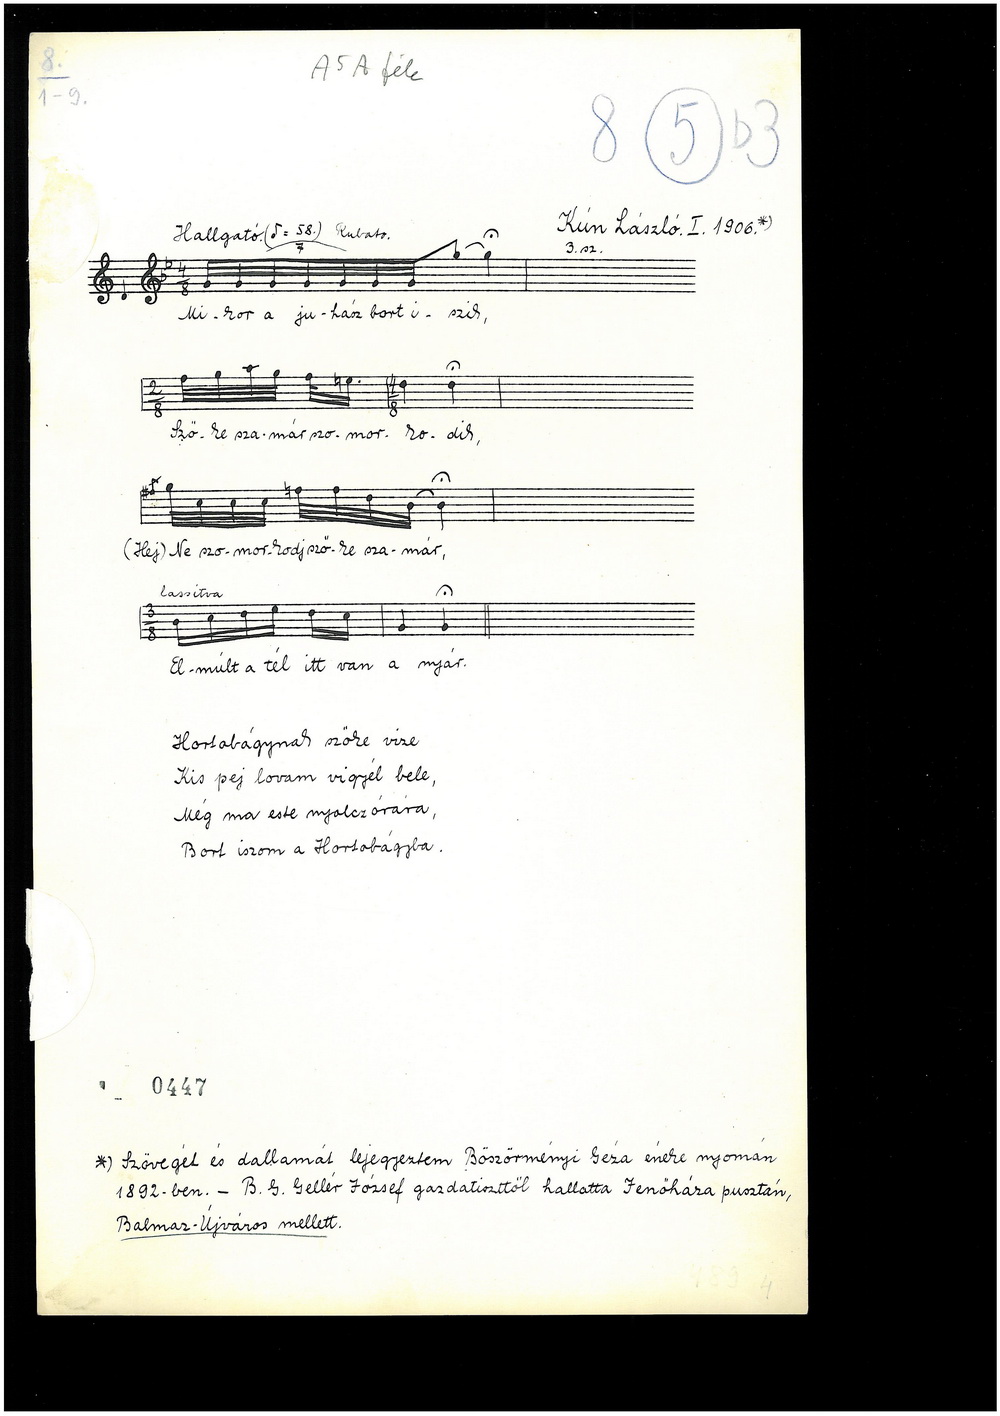 8.
1-9.
A⁵A féle
8 5 b3
Hallgató. (♪= 58.) Rubato.
Kún László. I. 1906.*)
3. sz.
7
4/8
Mi-kor a ju-hász bort i-szik,
2/8 4/8
Szö-ke sza-már szo-mor-ko-dik,
(Hej) Ne szo-mor-kodj szö-ke sza-már,
lassitva
3/8
El-múlt a tél itt van a nyár.
Hortobágynak szöke vize
Kis pej lovam vigyél bele,
Még ma este nyolczórára,
Bort iszom a Hortobágyba.
0447
*) Szövegét és dallamát lejegyeztem Böszörményi Géza éneke nyomán
1892-ben. – B. G. Gellér József gazdatiszttöl hallotta Fenöháza pusztán,
Balmaz-Újváros mellett.
4